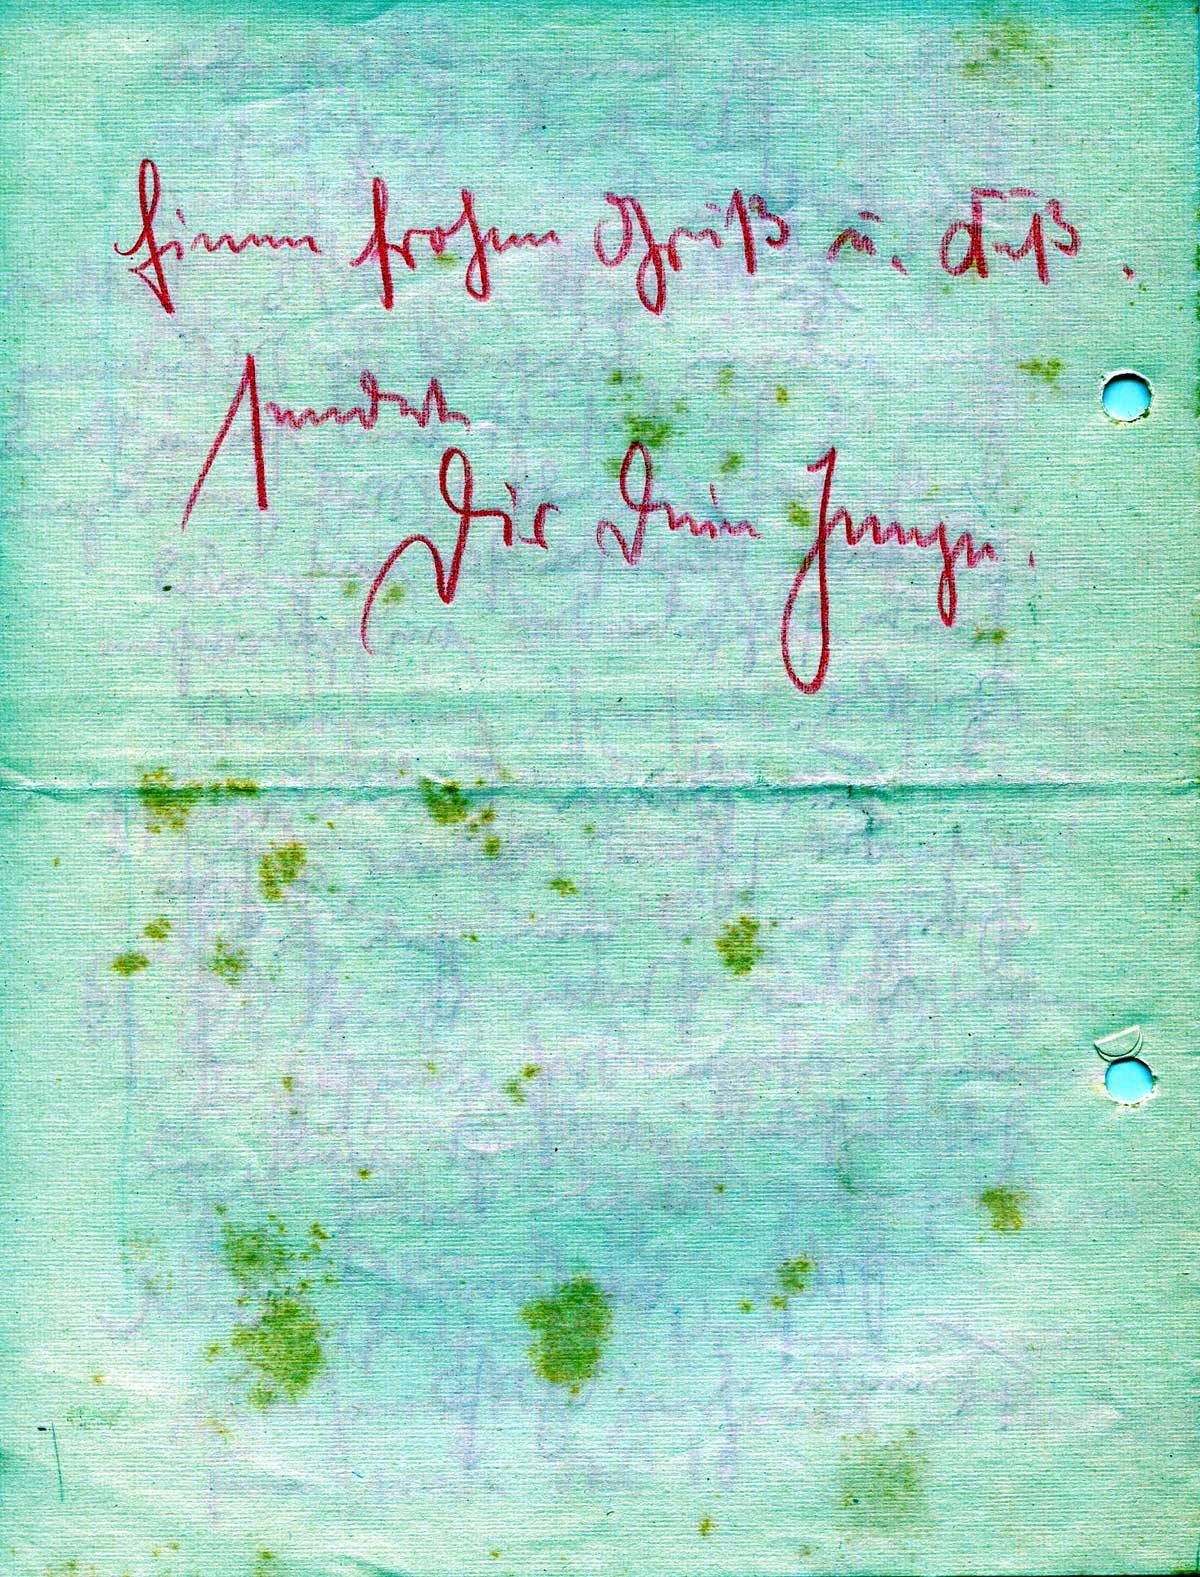 Einen frohen Gruß u. Kuß.
sendet
Dir Dein Junge.